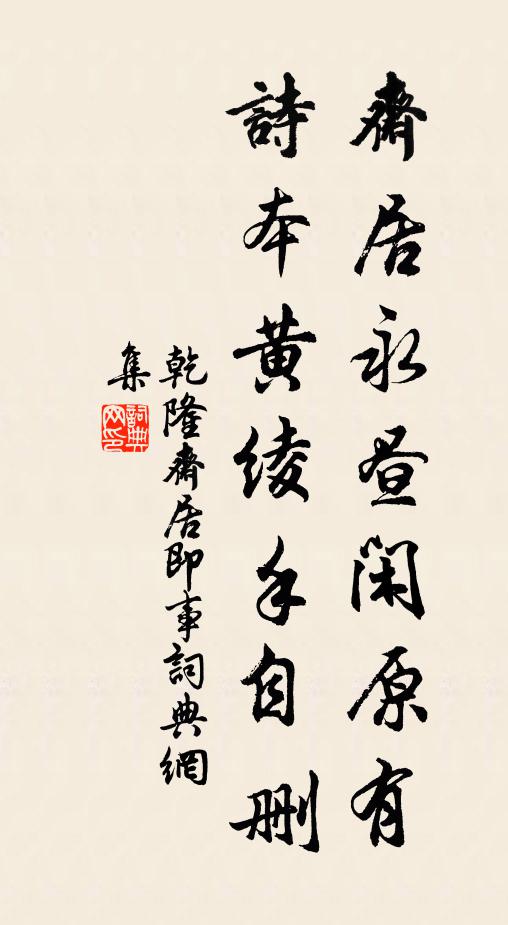 齋居永晝閑原有
詩本黃綾手自刪
乾隆齋居即事詞典網
集
詞典
网印